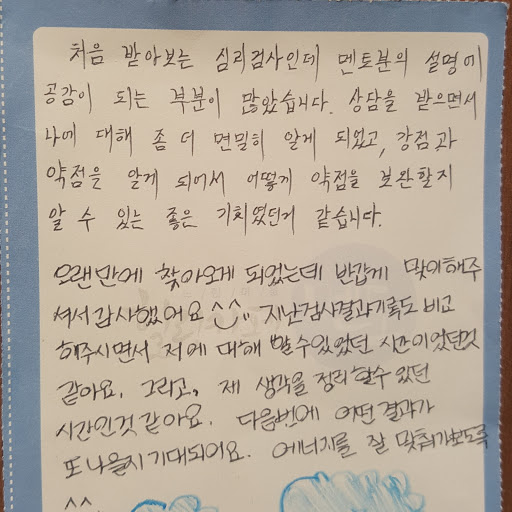 처음 받아보는 심리검사인데 멘토분의 설명에
공감이 되는 부분이 많았습니다. 상담을 받으면서
나에 대해 좀 더 면밀히 알게 되었고, 강점과
약점을 알게 되어서 어떻게 약점을 보완할지
알 수 있는 좋은 기회였던거 같습니다.
오랜만에 찾아오게 되었는데 반갑게 맞이해주
셔서 감사했어요 ^^ 지난검사결과기록도 비교
해주시면서 저에 대해 알 수 있었던 시간이었던것
같아요. 그리고, 제 생각을 정리 할 수 있던
시간인것 같아요. 다음번에 어떤 결과가
또 나올지 기대되어요. 에너지를 잘 맞춰가보도록
^^